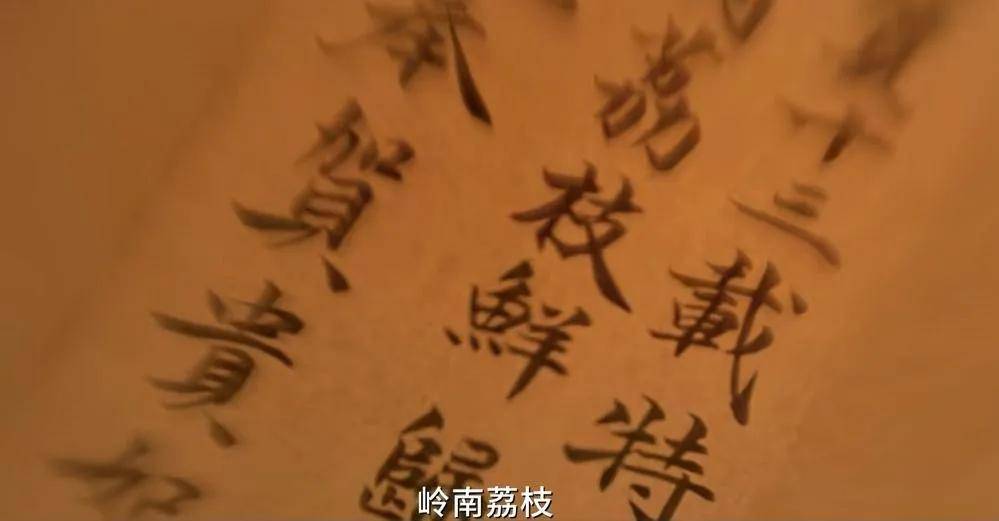 十三載特
荔枝鮮
賀貴
岭南荔枝